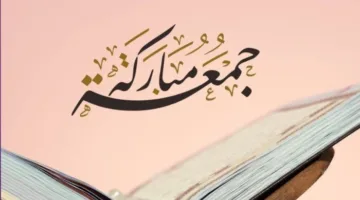 جُمُعَة مُبَارَكَة